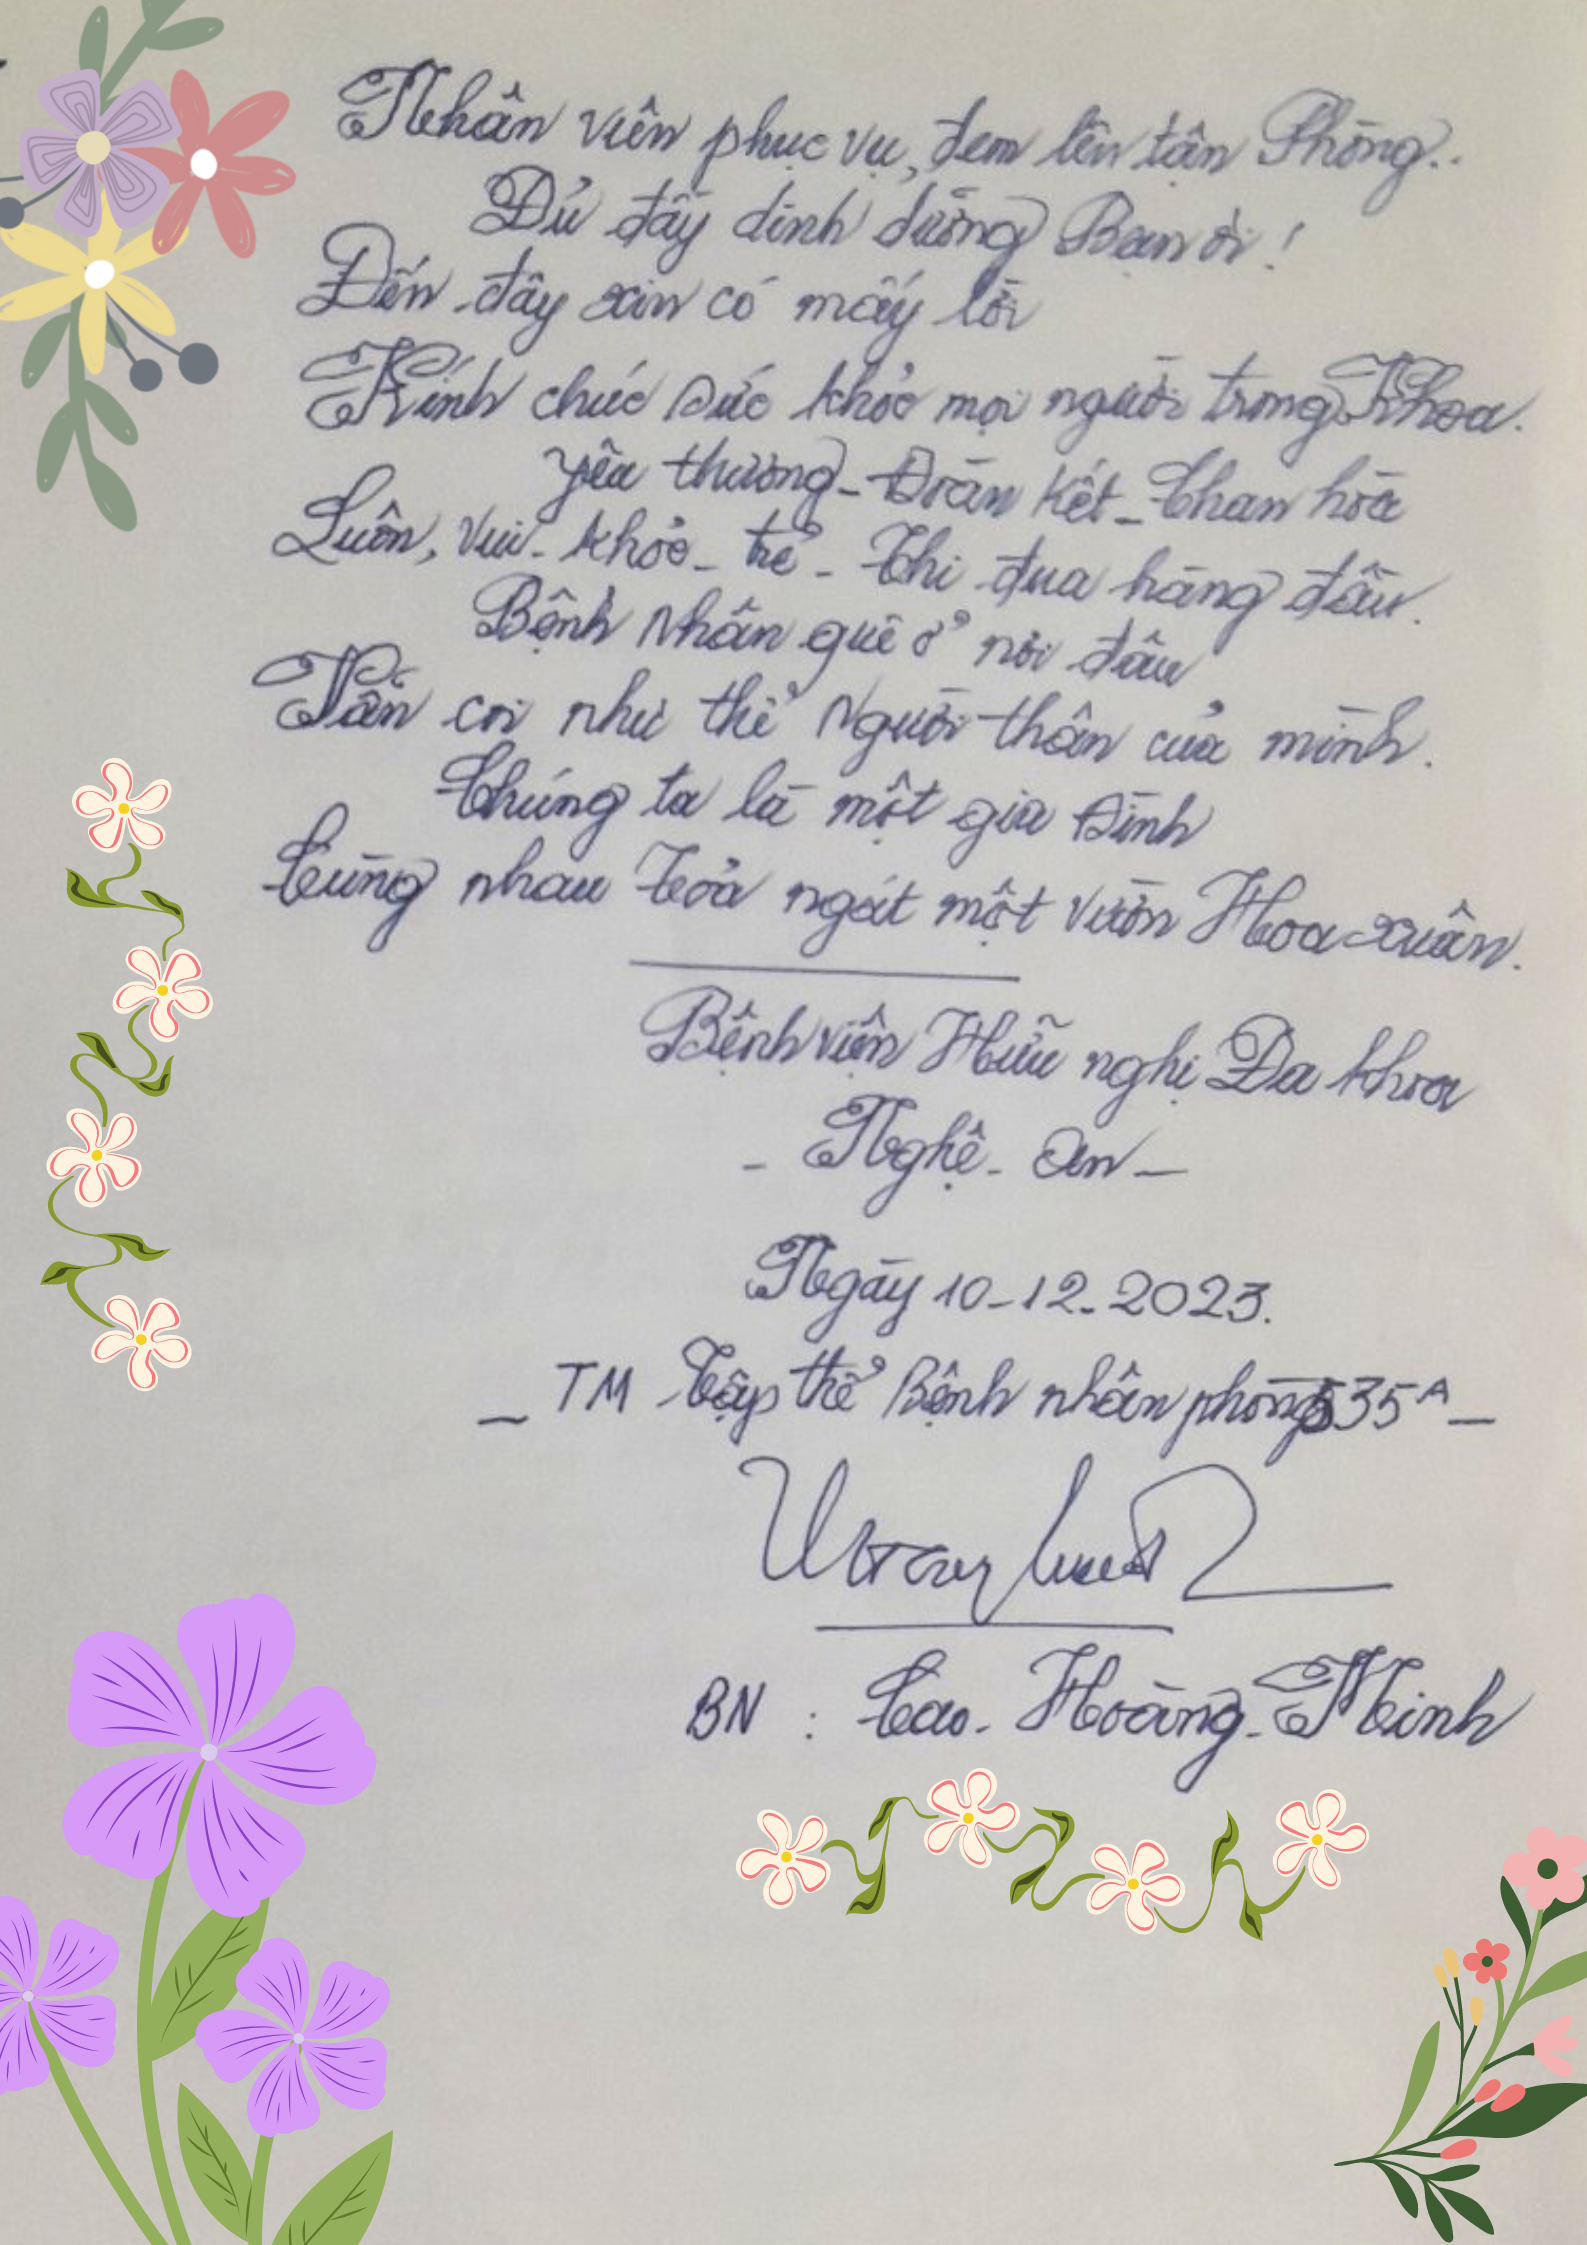 Nhân viên phục vụ, đem lên tận Phòng..
Đủ đầy dinh dưỡng Bạn ơi !
Đến đây xin có mấy lời
Kính chúc sức khỏe mọi người trong Khoa.
Yêu thương - Đoàn kết - Chan hòa
Luôn, vui - khỏe - trẻ - Thi đua hàng đầu.
Bệnh nhân quê ở nơi đâu
Vẫn coi như thể Người thân của mình.
Chúng ta là một gia Đình
Cùng nhau tỏa ngát một vườn Hoa xuân.
Bệnh viện Hữu nghị Đa khoa
- Nghệ - An -
Ngày 10-12-2023.
- TM Tập thể Bệnh nhân phòng 535A -
BN : Cao - Hoàng - Minh